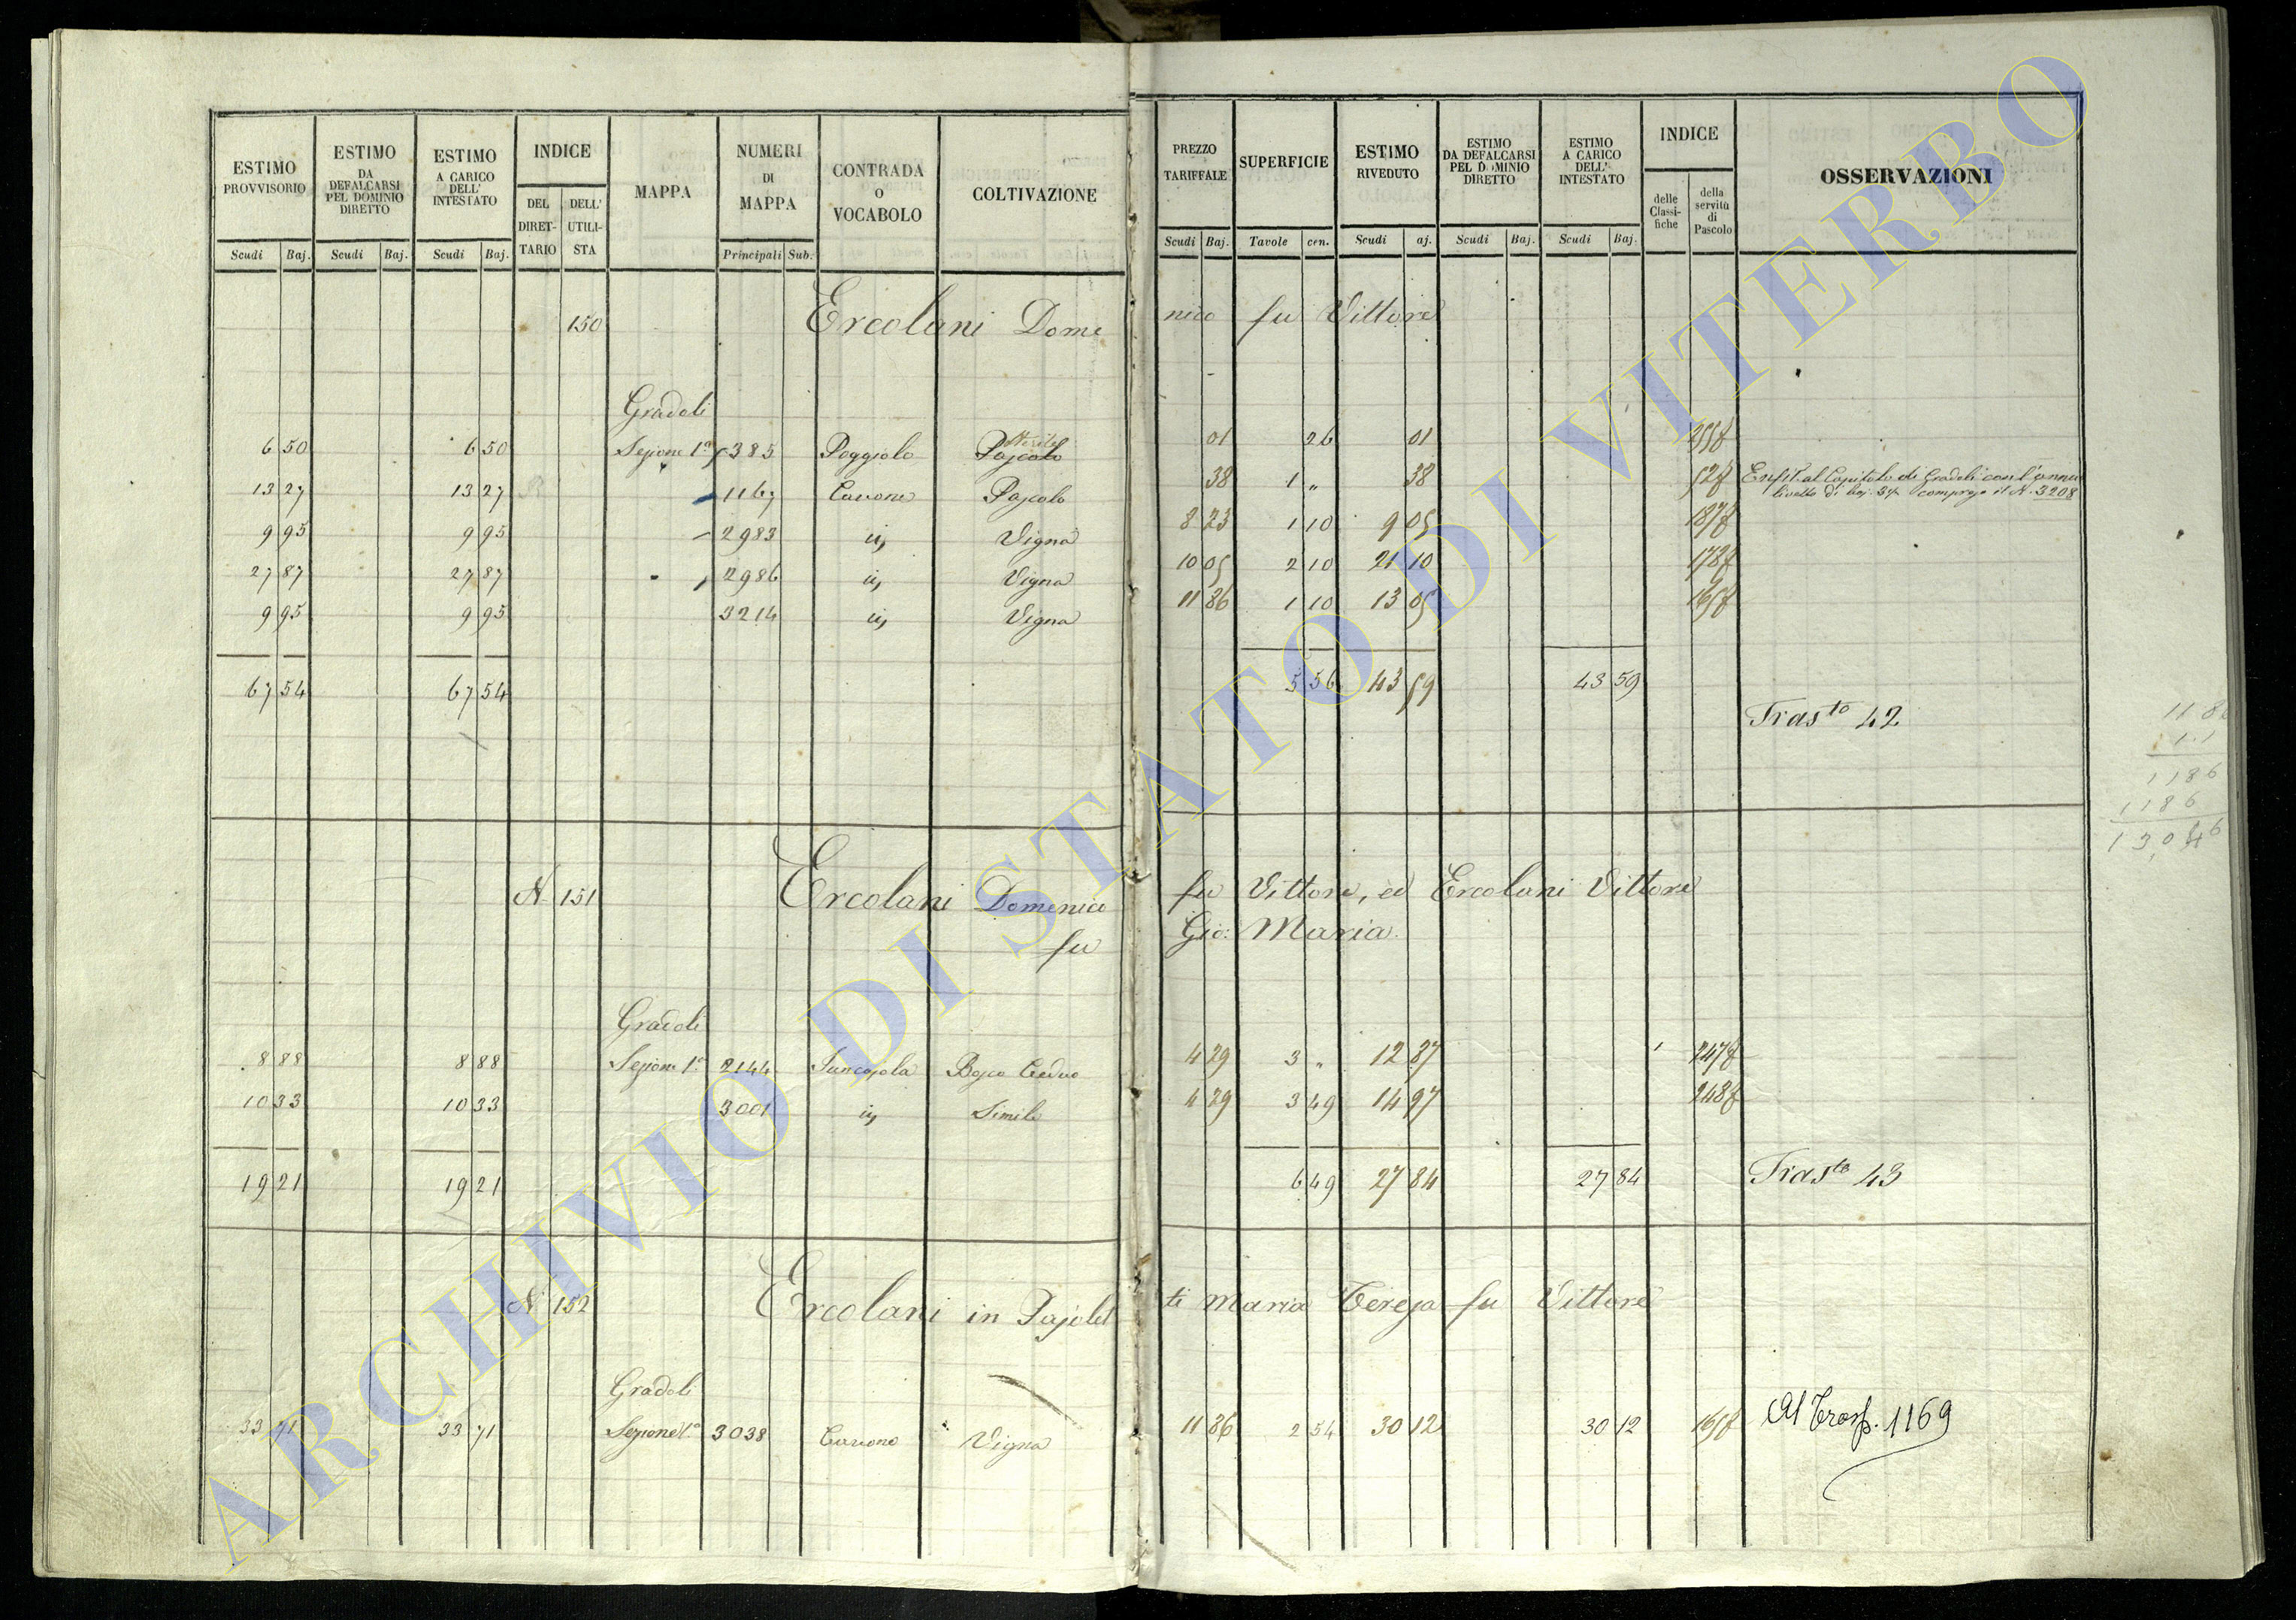 ESTIMO PROVVISORIO
Scudi Baj.
ESTIMO DA DEFALCARSI PEL DOMINIO DIRETTO
Scudi Baj.
ESTIMO A CARICO DELL' INTESTATO
Scudi Baj.
INDICE
DEL DIRET-TARIO
DELL' UTILI-STA
MAPPA
NUMERI DI MAPPA
Principali Sub.
CONTRADA O VOCABOLO
COLTIVAZIONE
PREZZO TARIFFALE
Scudi Baj.
SUPERFICIE
Tavole cen.
ESTIMO RIVEDUTO
Scudi aj.
ESTIMO DA DEFALCARSI PEL DOMINIO DIRETTO
Scudi Baj.
ESTIMO A CARICO DELL' INTESTATO
Scudi Baj.
INDICE
delle Classi-fiche
della servitù di Pascolo
OSSERVAZIONI
150 Ercolani Dome nico fu Vittore
Gradoli
6 50 6 50 Sezione 1ª 385 Poggiolo Pascolo 01 26 01
13 27 13 27 1167 Cavone Pascolo 38 1 " 38 Enfit. al Capitolo di Gradoli con l'annuo
livello di baj. compreso il N. 3208
9 95 9 95 2983 id Vigna 8 23 1 10 9 05
27 87 27 87 2986 id Vigna 10 05 2 10 21 10
9 95 9 95 3214 id Vigna 11 86 1 10 13 05
67 54 67 54 5 56 43 59 43 59
Trasto 42
11 86
1.1
1186
1186
13,046
N. 151 Ercolani Domenico fu Vittore, ed Ercolani Vittore
fu Gio: Maria.
Gradoli
8 88 8 88 Sezione 1ª 2144 Bosco Ceduo 4 29 3 " 12 87
10 33 10 33 3001 id Simile 4 29 3 49 14 97
19 21 19 21 6 49 27 84 27 84 Trasto 43
N. 152 Ercolani in Pajolet ti Maria Teresa fu Vittore
Gradoli
33 71 33 71 Sezione 1ª 3038 Cavone Vigna 11 86 2 54 30 12 30 12 Al Trasp. 1169
ARCHIVIO DI STATO DI VITERBO